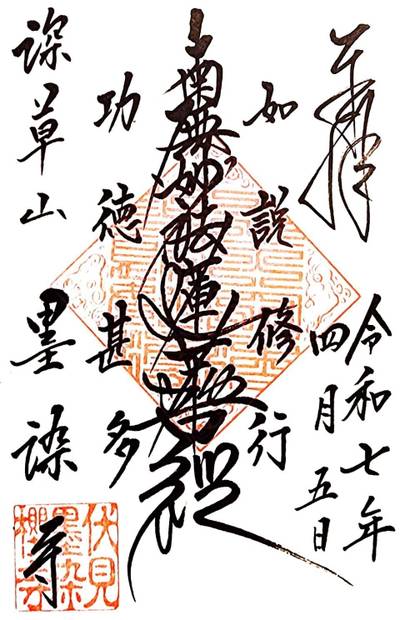 奉拝
令和七年
四月五日
如説修行
南無妙法蓮華経
功徳甚多
深草山
墨染寺
伏見
墨染
櫻寺